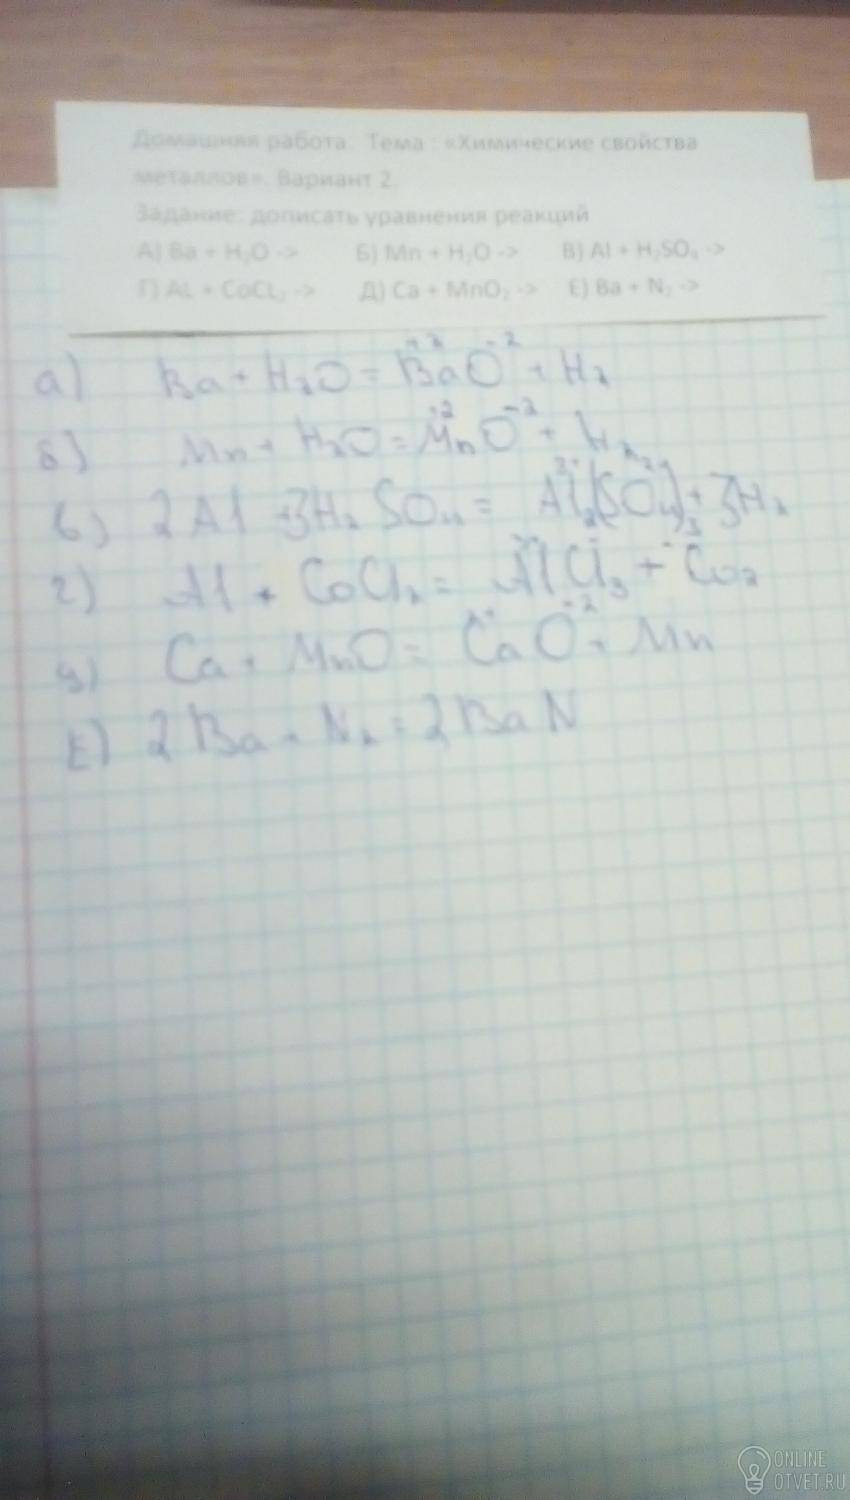 Домашняя работа. Тема : «Химические свойства
металлов». Вариант 2.
Задание: дописать уравнения реакций
А) Ba + H₂O -> Б) Mn + H₂O -> В) Al + H₂SO₄ ->
Г) AL + CoCL₂ -> Д) Ca + MnO₂ -> Е) Ba + N₂ ->
а) Ba + H₂O = Ba⁺²O⁻² + H₂
б) Mn + H₂O = Mn⁺²O⁻² + H₂
в) 2Al + 3H₂SO₄ = Al₂(SO₄)₃ + 3H₂
г) Al + CoCl₂ = AlCl₃ + Co₂
д) Ca + MnO = CaO⁻² + Mn
Е) 2Ba + N₂ = 2BaN
ONLINE
OTVET.RU